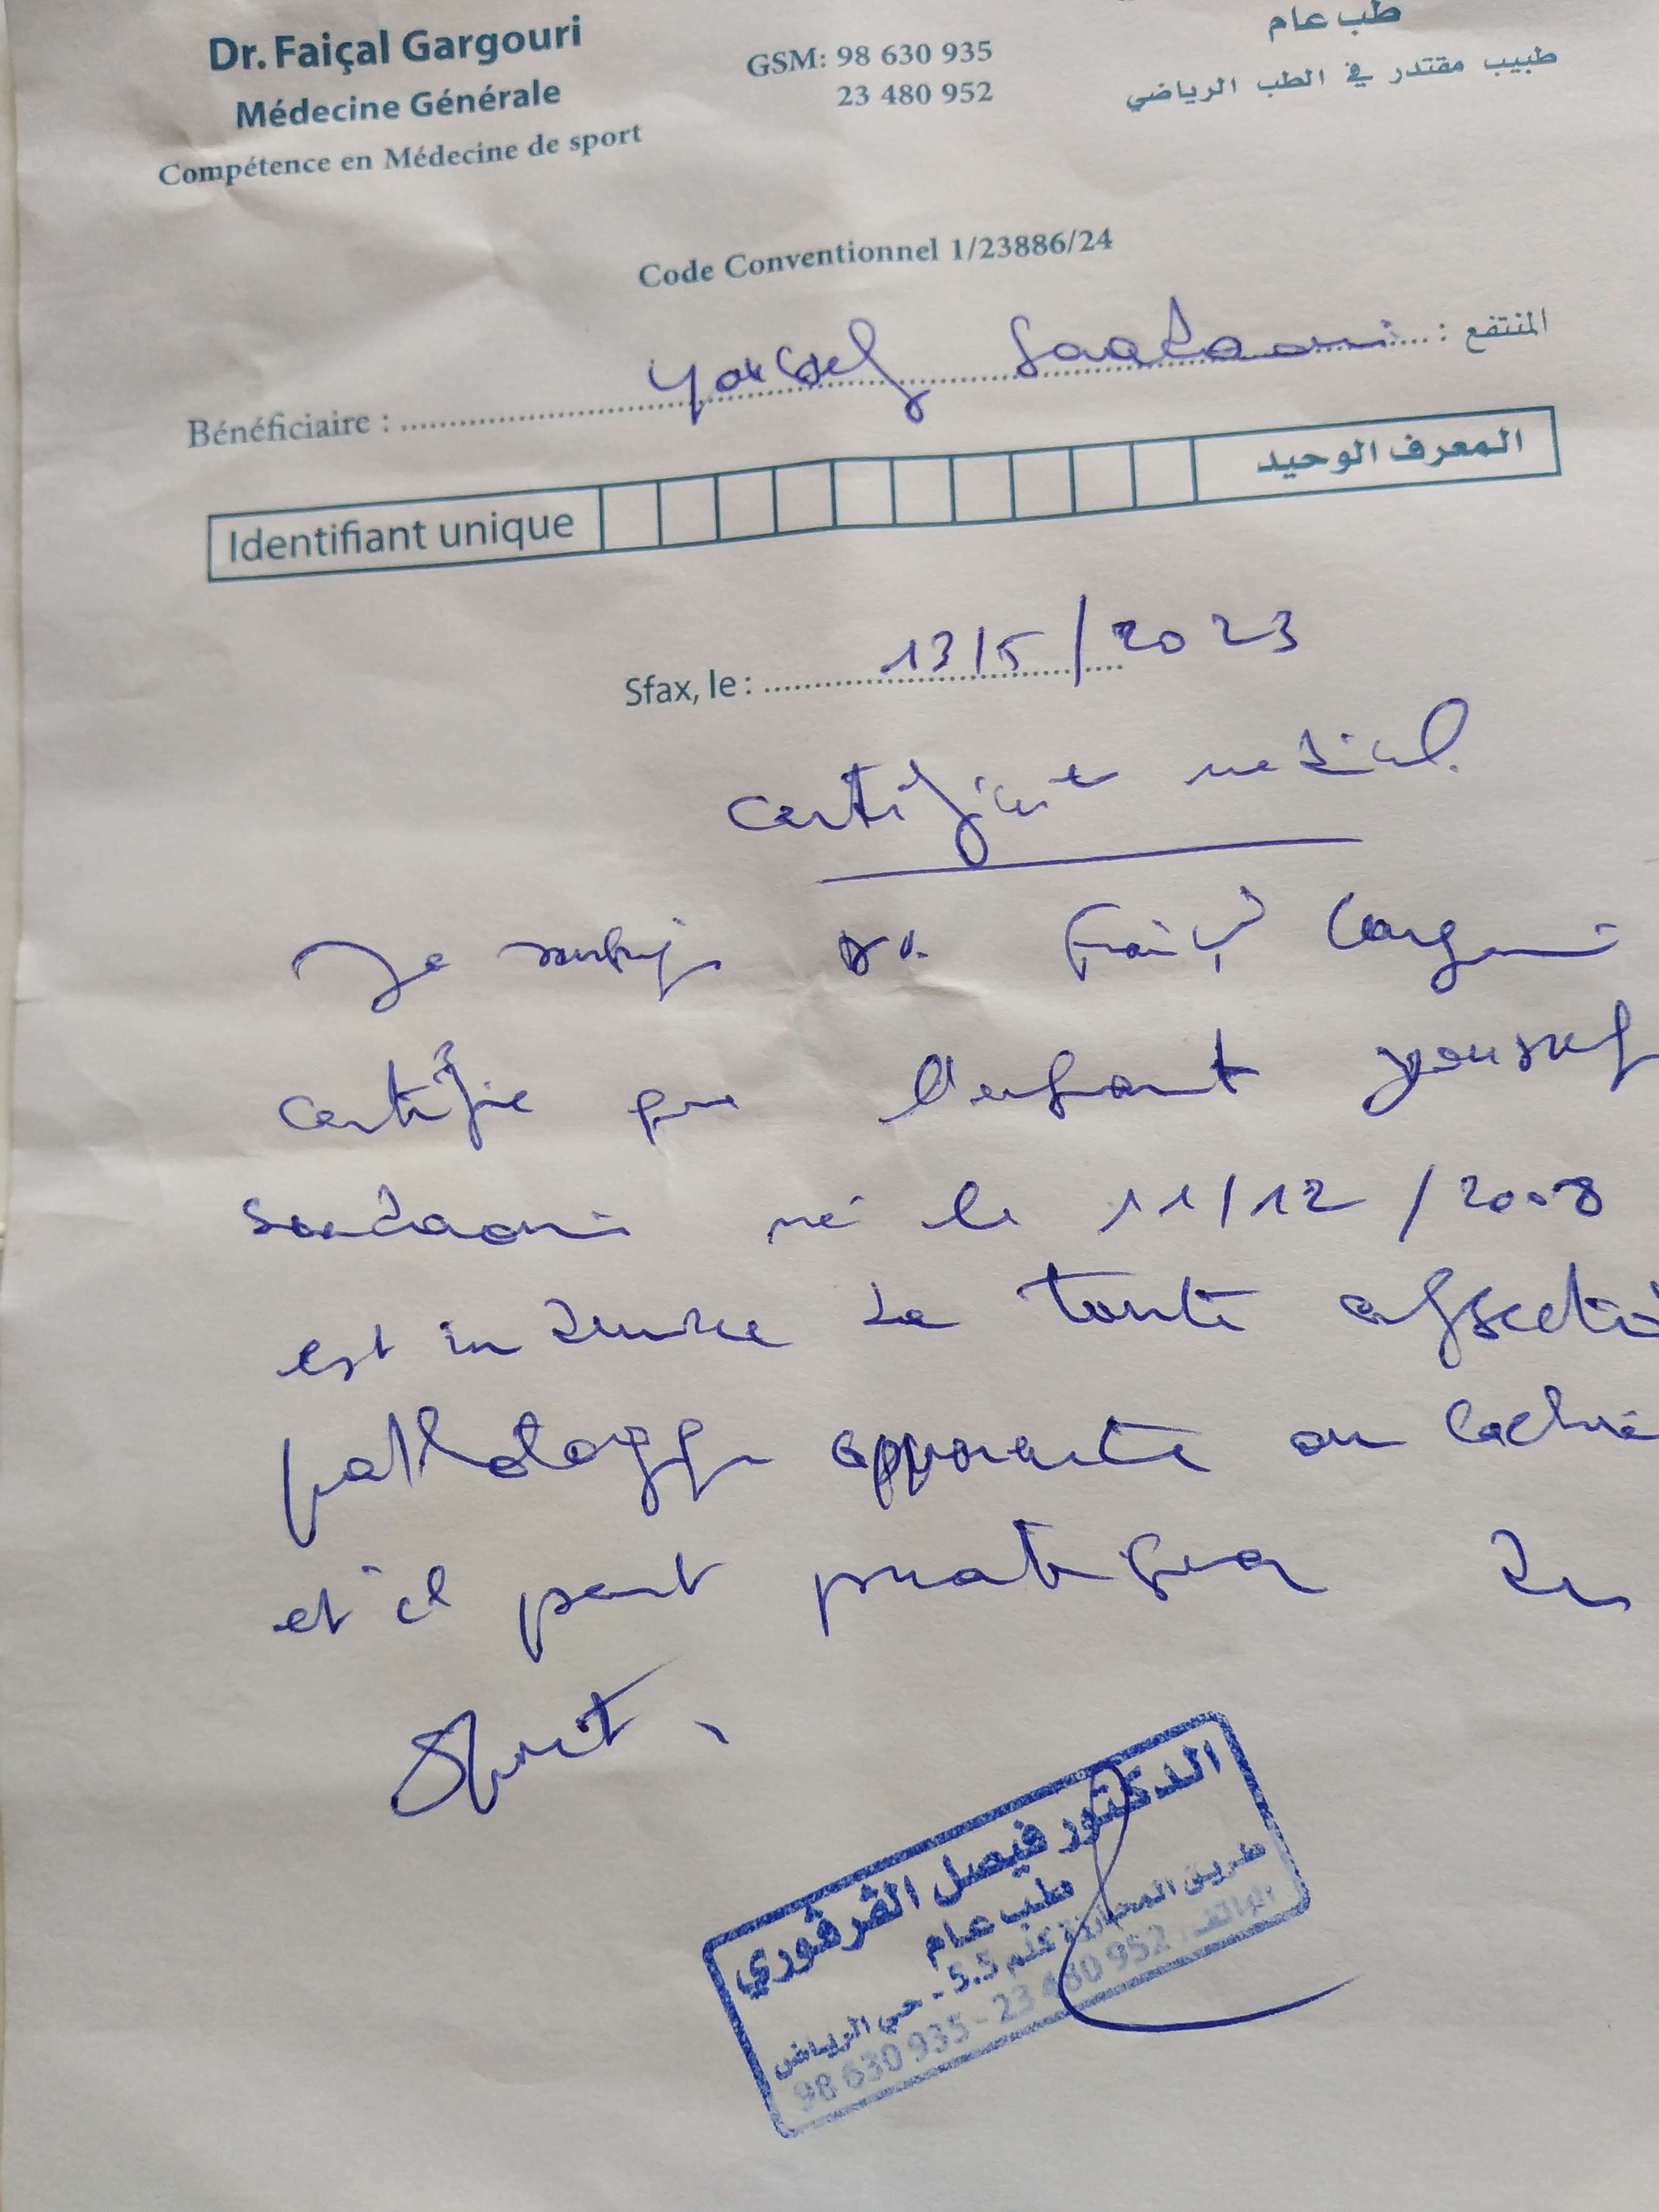 Dr. Faiçal Gargouri
Médecine Générale
Compétence en Médecine de sport
GSM: 98 630 935
23 480 952
طب عام
طبيب مقتدر في الطب الرياضي
Code Conventionnel 1/23886/24
Bénéficiaire : Youssef Saadaoui المنتفع :
Identifiant unique المعرف الوحيد
Sfax, le : 13/5/2023
certificat medical
Je soussigné Dr. Faiçal Gargouri
certifie que l'enfant youssef
saadaoui né le 11/12/2008
est indemne de toute affectio
pathologique apparente ou cachée
et il peut pratiquer du
Sport.
الدكتور فيصل الڨرڨوري
طب عام
طريق المحارزة كلم 5.5 - حي الرياض
الهاتف: 98 630 935 - 23 480 952